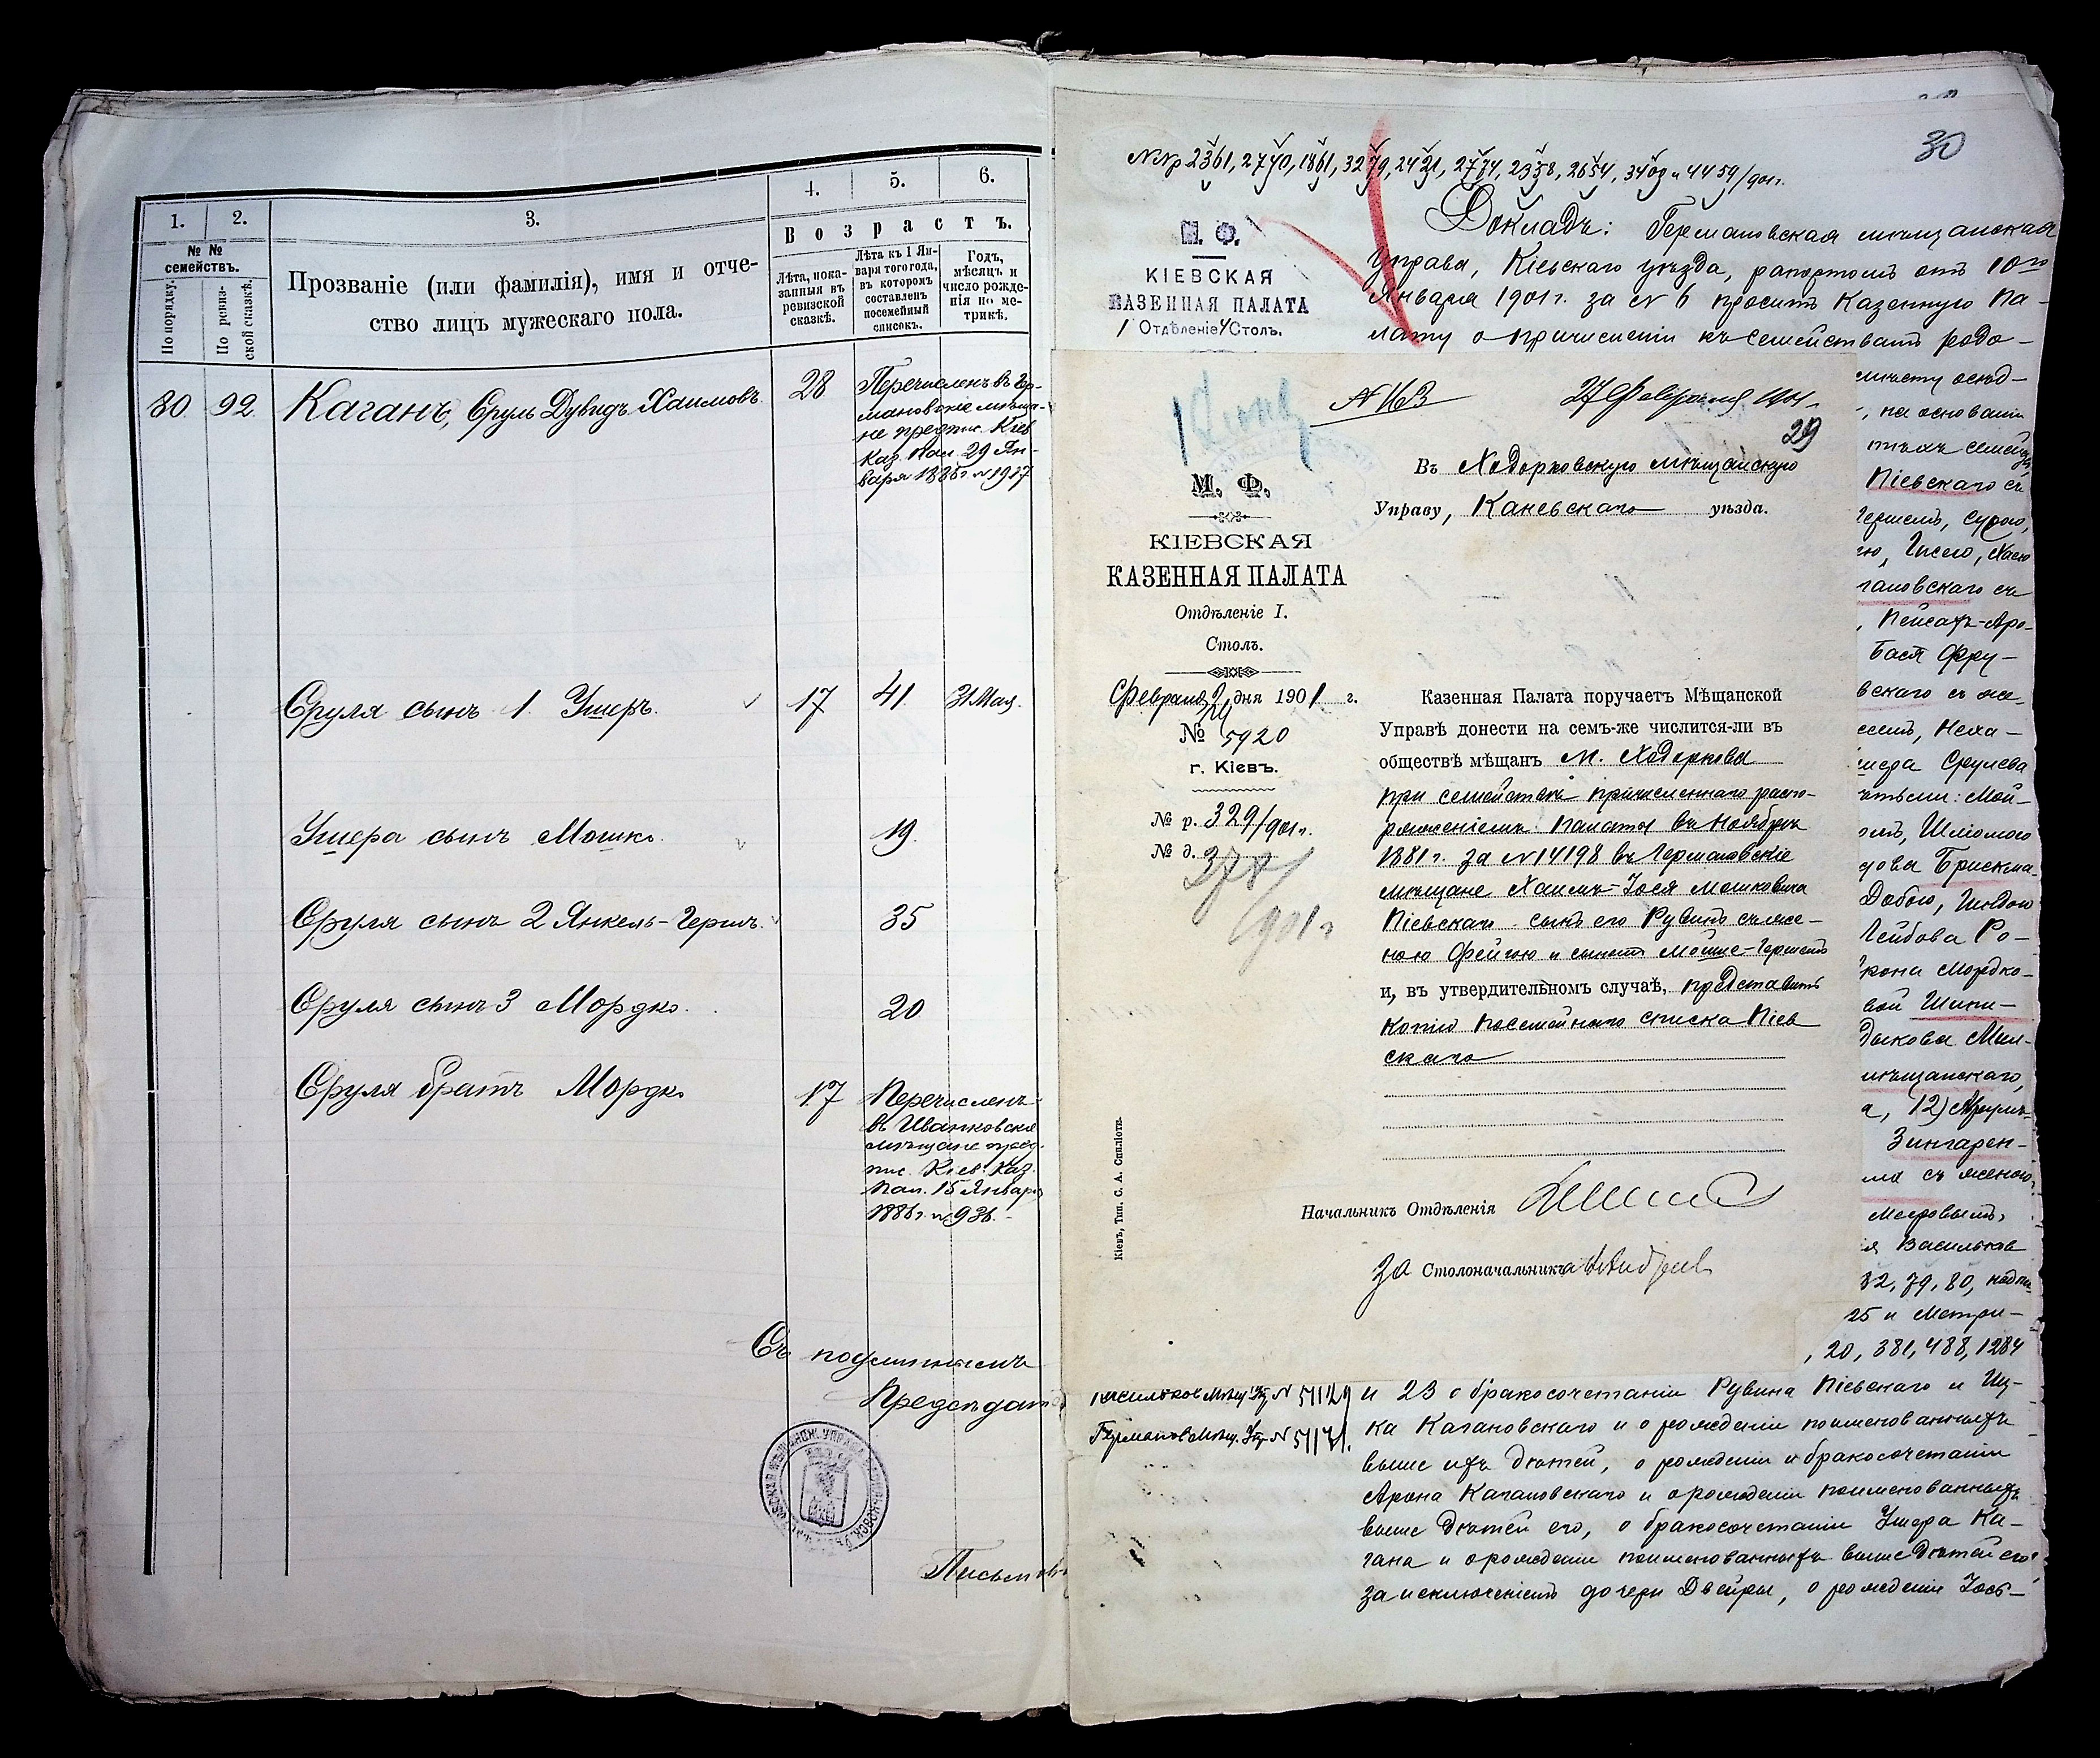 1.
2.
3.
4.
5.
6.
№ №
семействъ.
По порядку.
По ревиз-
ской сказкѣ.
Прозваніе (или фамилія), имя и отче-
ство лицъ мужескаго пола.
Возрастъ.
Лѣта, пока-
занныя въ
ревизской
сказкѣ.
Лѣта къ 1 Ян-
варя того года,
въ которомъ
составленъ
посемейный
списокъ.
Годъ,
мѣсяцъ и
число рожде-
нія по ме-
трикѣ.
80. 92. Каганъ, Сруль Дувидъ Хаимовъ 28
Перечисленъ въ Гер-
мановскіе мѣща-
не предпис. Кіев.
Каз. Пал. 29 Ян-
варя 1885 г. № 1917
Сруля сынъ 1. Ушеръ. 17 41. 31 Мая.
Ушера сынъ Мошко. 19.
Сруля сынъ 2 Янкель-Гершъ. 35
Сруля сынъ 3 Мордко. 20
Сруля братъ Мордко 17
Перечисленъ
въ Иванковскіе
мѣщане пред-
пис. Кіев. Каз.
Пал. 15 Января
1886 г. № 936.
Съ подлиннымъ
Предсѣдат
Письмов
30
№№ 2361, 2740, 1861, 3279, 2421, 2774, 2358, 2654, 3409 и 4459/901 г.
М. Ф.
КІЕВСКАЯ
КАЗЕННАЯ ПАЛАТА
1 Отдѣленіе Столъ.
Докладъ: Германовская мѣщанская
Управа, Кіевскаго уѣзда, рапортомъ отъ 10го
Января 1901 г. за № 6 проситъ Казенную Па-
лату о причисленіи къ семействамъ родо-
27 Февраля 1901
29
М. Ф.
КІЕВСКАЯ
КАЗЕННАЯ ПАЛАТА
Отдѣленіе I.
Столъ.
Февраля 2 дня 1901 г.
№ 5920
г. Кіевъ.
№ р. 329/901 г.
№ д.
378/
901 г
Въ Ходорковскую мѣщанскую
Управу, Каневскаго уѣзда.
Казенная Палата поручаетъ Мѣщанской
Управѣ донести на семъ-же числится-ли въ
обществѣ мѣщанъ м. Ходоркова
при семействѣ причисленнаго распо-
ряженіемъ Палаты въ Ноябрѣ
1881 г. за № 14198 въ Германовскіе
мѣщане Хаимъ-Іося Мошковича
Кіевскаго сынъ его Рувинъ съ же-
ною Фейгою и сыномъ Мойше-Гершемъ
и, въ утвердительномъ случаѣ, представить
копію посемейнаго списка Кіев
скаго
Начальникъ Отдѣленія
За Столоначальника
Кіевъ, Тип. С. А. Спиліоти.
, на основаніи
Кіевскаго съ
Гершемъ, Сурою,
гановскаго съ
, Пейсахъ-Аро-
Бася Фру-
вскаго съ же-
Неха-
Срулева
ѣтьми: Мой-
омъ, Шліомою
дова Брискма-
Добою,
Лейбова Ро-
рона Мордко-
вой Шпи-
мѣщанскаго,
а, 12)
Зингарен-
ма съ женою
Мееровымъ,
я Васильков
32, 79, 80,
25 и Метри-
, 20, 381, 488, 1284
Васильков Мѣщ. Упр № 51129
Германов Мѣщ. Упр № 51131.
и 23 о бракосочетаніи Рувина Кіевскаго и Иц-
ка Кагановскаго и о рожденіи поименованныхъ
выше ихъ дѣтей, о рожденіи и бракосочетаніи
Арона Кагановскаго и о рожденіи поименованныхъ
выше дѣтей его, о бракосочетаніи Ушера Ка-
гана и о рожденіи поименованныхъ выше дѣтей его
за исключеніемъ дочери Двейры, о рожденіи Іось-